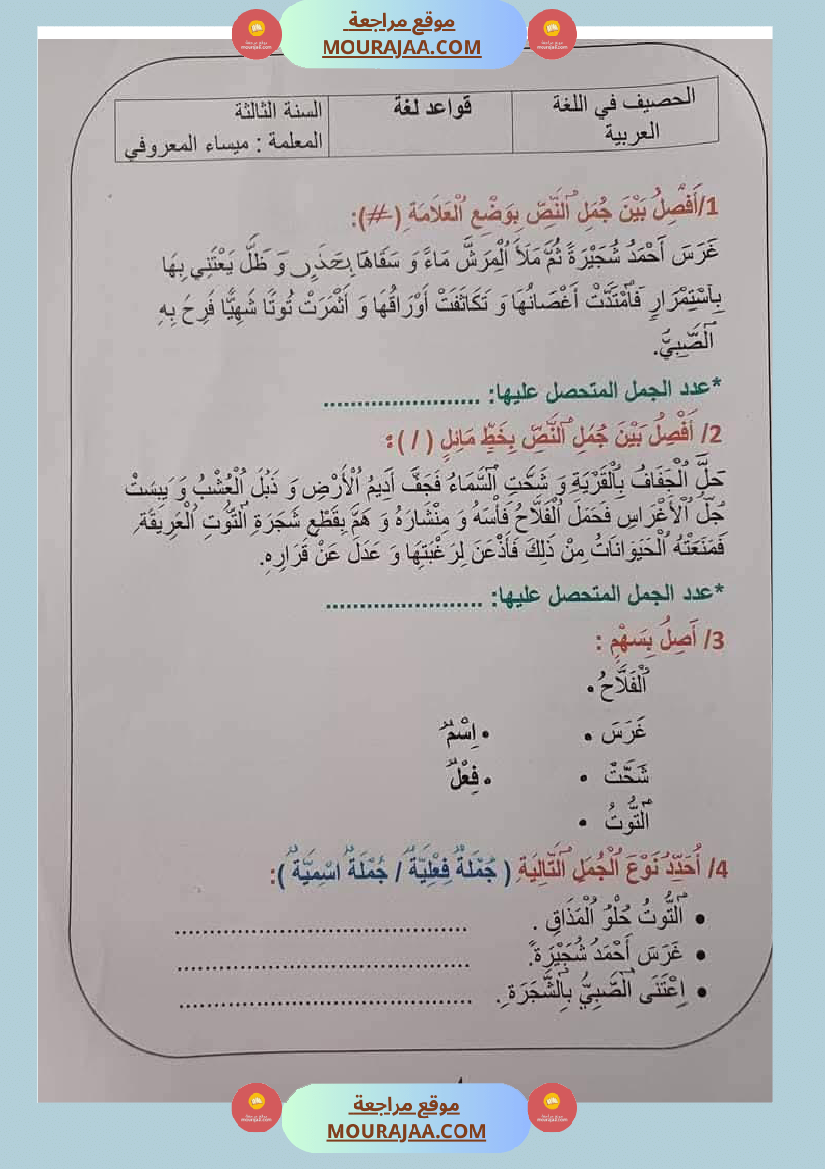 موقع مراجعة
MOURAJAA.COM
الحصيف في اللغة العربية
قواعد لغة
السنة الثالثة
المعلمة : ميساء المعروفي
1/أَفْصِلُ بَيْنَ جُمَلِ ٱلنَّصِّ بِوَضْعِ ٱلْعَلَامَةِ (#):
غَرَسَ أَحْمَدُ شُجَيْرَةً ثُمَّ مَلَأَ ٱلْمِرَشَّ مَاءً وَ سَقَاهَا بِحَذَرٍ وَ ظَلَّ يَعْتَنِي بِهَا
بِٱسْتِمْرَارٍ فَٱمْتَدَّتْ أَغْصَانُهَا وَ تَكَاثَفَتْ أَوْرَاقُهَا وَ أَثْمَرَتْ تُوتًا شَهِيًّا فَرِحَ بِهِ
ٱلصَّبِيُّ.
*عدد الجمل المتحصل عليها: .......................
2/ أَفْصِلُ بَيْنَ جُمَلِ ٱلنَّصِّ بِخَطٍّ مَائِلٍ ( / ) :
حَلَّ ٱلْجَفَافُ بِٱلْقَرْيَةِ وَ شَحَّتِ ٱلسَّمَاءُ فَجَفَّ أَدِيمُ ٱلْأَرْضِ وَ ذَبُلَ ٱلْعُشْبُ وَ يَبِسَتْ
جُلُّ ٱلْأَغْرَاسِ فَحَمَلَ ٱلْفَلَّاحُ فَأْسَهُ وَ مِنْشَارَهُ وَ هَمَّ بِقَطْعِ شَجَرَةِ ٱلتُّوتِ ٱلْعَرِيقَةِ.
فَمَنَعَتْهُ ٱلْحَيَوَانَاتُ مِنْ ذَلِكَ فَأَذْعَنَ لِرَغْبَتِهَا وَ عَدَلَ عَنْ قَرَارِهِ.
*عدد الجمل المتحصل عليها: .......................
3/ أَصِلُ بِسَهْمٍ :
ٱلْفَلَّاحُ •
غَرَسَ • • اِسْمٌ
شَحَّتْ • • فِعْلٌ
ٱلتُّوتُ •
4/ أُحَدِّدُ نَوْعَ ٱلْجُمَلِ ٱلتَّالِيَةِ ( جُمْلَةٌ فِعْلِيَّةٌ / جُمْلَةٌ اسْمِيَّةٌ ):
• ٱلتُّوتُ حُلْوُ ٱلْمَذَاقِ . ..........................................
• غَرَسَ أَحْمَدُ شُجَيْرَةً. ..........................................
• اِعْتَنَى ٱلصَّبِيُّ بِٱلشَّجَرَةِ. ..........................................
موقع مراجعة
MOURAJAA.COM